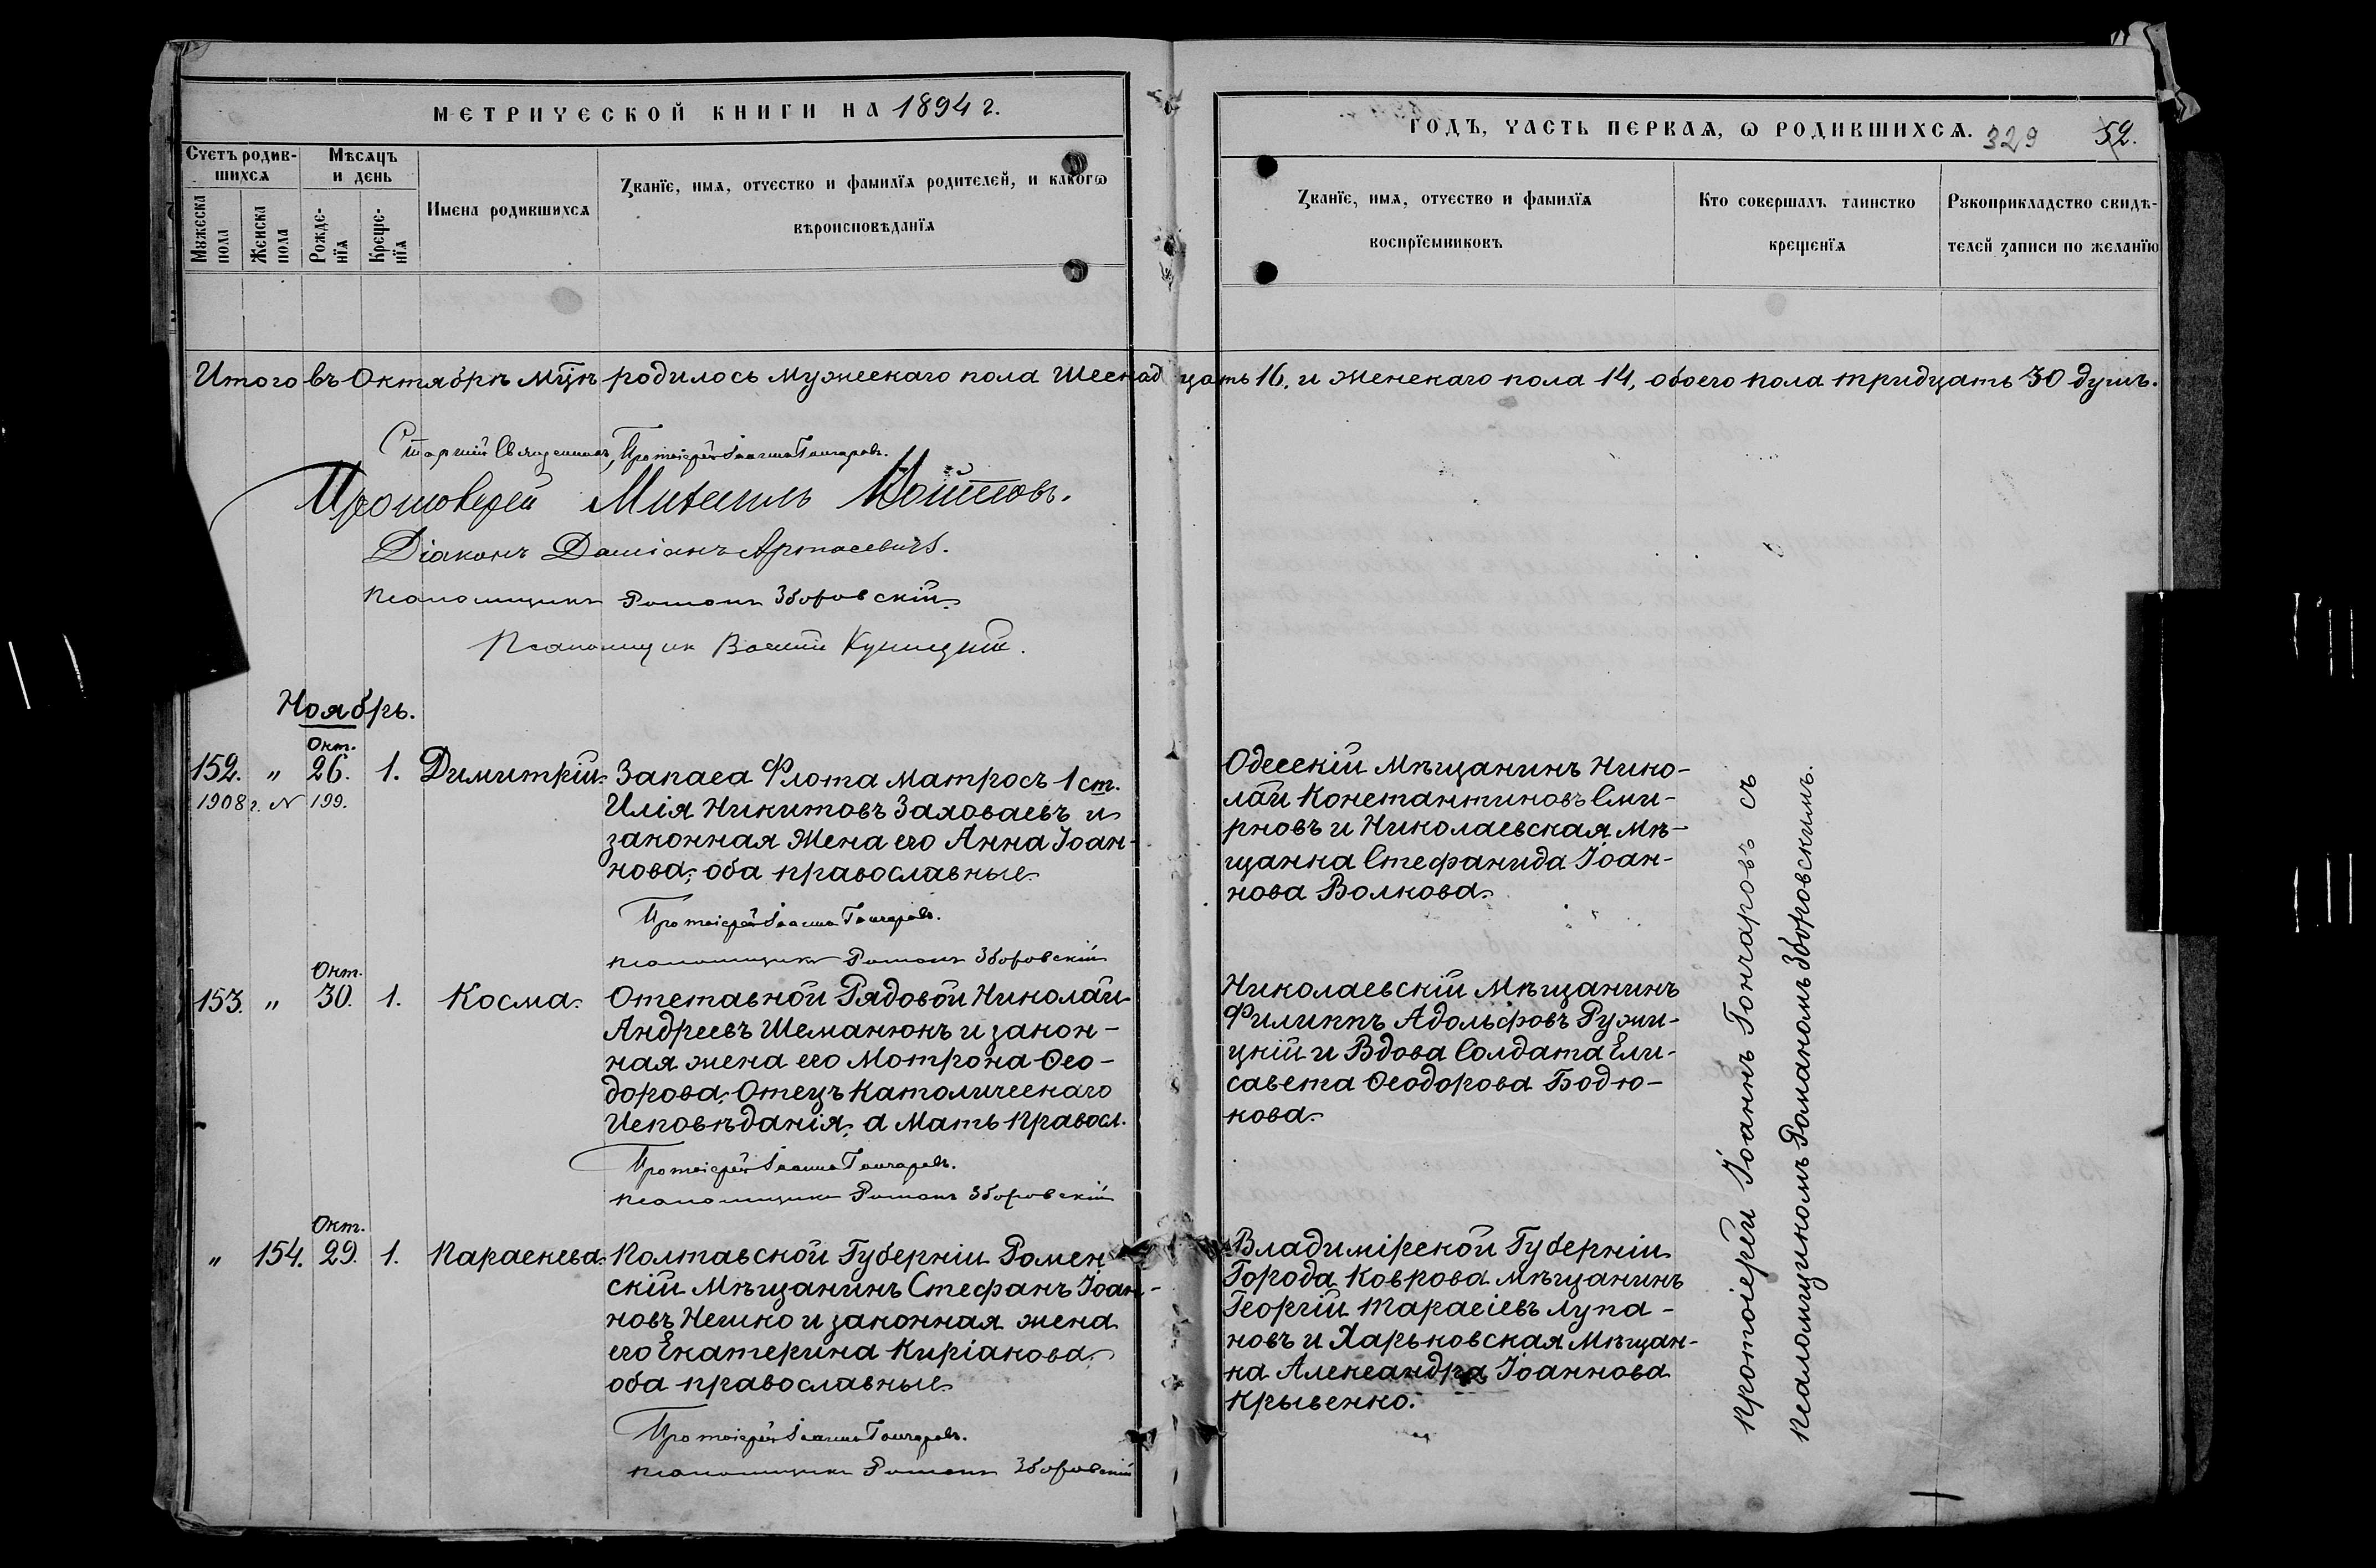 МЕТРИЧЕСКОЙ КНИГИ НА 1894 г.
Счетъ родив-
шихся
Мѣсяцъ
и день
Мужеска пола
Женска пола
Рожде-
нїя
Креще-
нїя
Имена родившихся
Званїе, имя, отчество и фамилїя родителей, и какогѡ
вѣроисповѣданїя
ГОДЪ, ЧАСТЬ ПЕРВАЯ, Ѡ РОДИВШИХСЯ. 329 52.
Званїе, имя, отчество и фамилїя
воспрїемниковъ
Кто совершалъ таинство
крещенїя
Рукоприкладство свидѣ-
телей записи по желанїю
Итого въ Октябрѣ Мцѣ родилось Мужескаго пола Шеснадцать 16, и Женскаго пола 14, обоего пола тридцать 30 душъ.
Старшій Священникъ, Протоіерей Іоаннъ Гончаровъ.
Протоіерей Михаилъ
Діаконъ Даміанъ Артасевичъ.
Псаломщикъ Романъ Зборовскій
Псаломщик Василій Куницкій.
Ноябрь.
Окт.
152. " 26. 1. Димитрій.
1908 г. № 199.
Запаса Флота Матросъ 1 ст.
Илія Никитовъ Заховаевъ и
законная Жена его Анна Іоан-
нова, оба православные
Протоіерей Іоаннъ Гончаровъ.
псаломщикъ Романъ Зборовскій
Одесскій Мѣщанинъ Нико-
лай Константиновъ Сми-
рновъ и Николаевская Мѣ-
щанка Стефанида Іоан-
нова Волкова.
Окт.
153. " 30. 1. Косма.
Отставной Рядовой Николай
Андреевъ Шеманюкъ и закон-
ная жена его Мотрона Ѳео-
дорова, Отецъ Католическаго
Исповѣданія, а Мать Правосл.
Протоіерей Іоаннъ Гончаровъ.
псаломщикъ Романъ Зборовскій
Николаевскій Мѣщанинъ
Филиппъ Адольфовъ Ружи-
цкій и Вдова Солдата Ели-
савета Ѳеодорова Бодю-
кова.
Окт.
" 154. 29. 1. Параскева.
Полтавской Губерніи Ромен
скій Мѣщанинъ Стефанъ Іоан-
новъ Нешко и законная жена
его Екатерина Киріакова,
оба православные
Протоіерей Іоаннъ Гончаровъ.
псаломщикъ Романъ Зборовскій
Владимірской Губерніи
Города Коврова мѣщанинъ
Георгій Тарасіевъ Лупа-
новъ и Харьковская Мѣщан-
ка Александра Іоаннова
Крывенко.
Протоіерей Іоаннъ Гончаровъ съ
псаломщикомъ Романомъ Зборовскимъ.